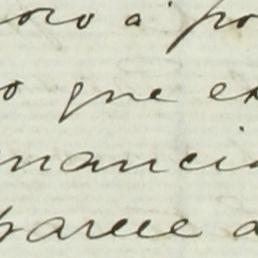 oro á po
o que ex
nancia
parece a